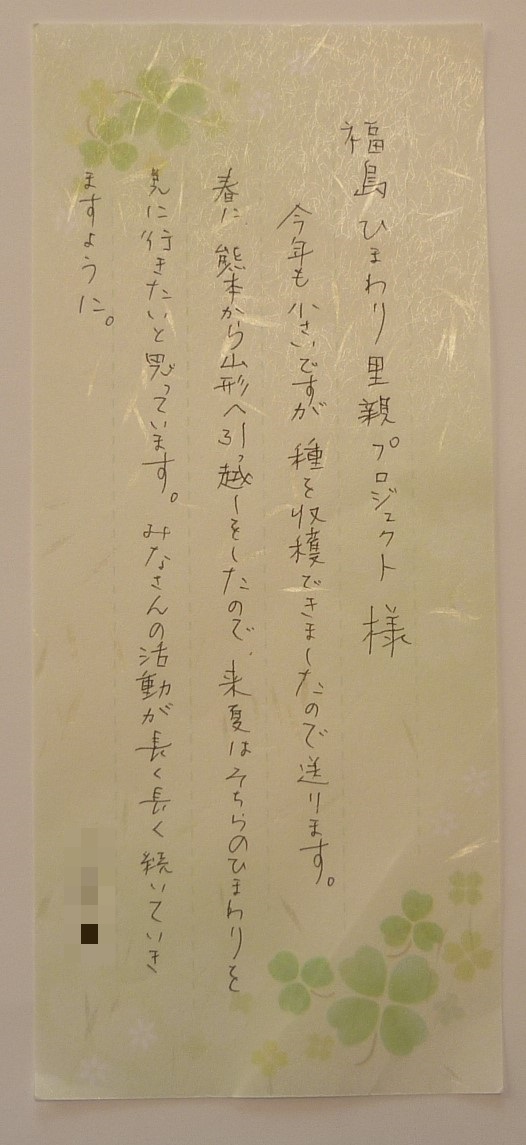 福島ひまわり里親プロジェクト 様
今年も小さいですが 種を収穫できましたので送ります。
春に、熊本から山形へ引っ越しをしたので、来夏はそちらのひまわりを
見に行きたいと思っています。みなさんの活動が長く長く続いていき
ますように。